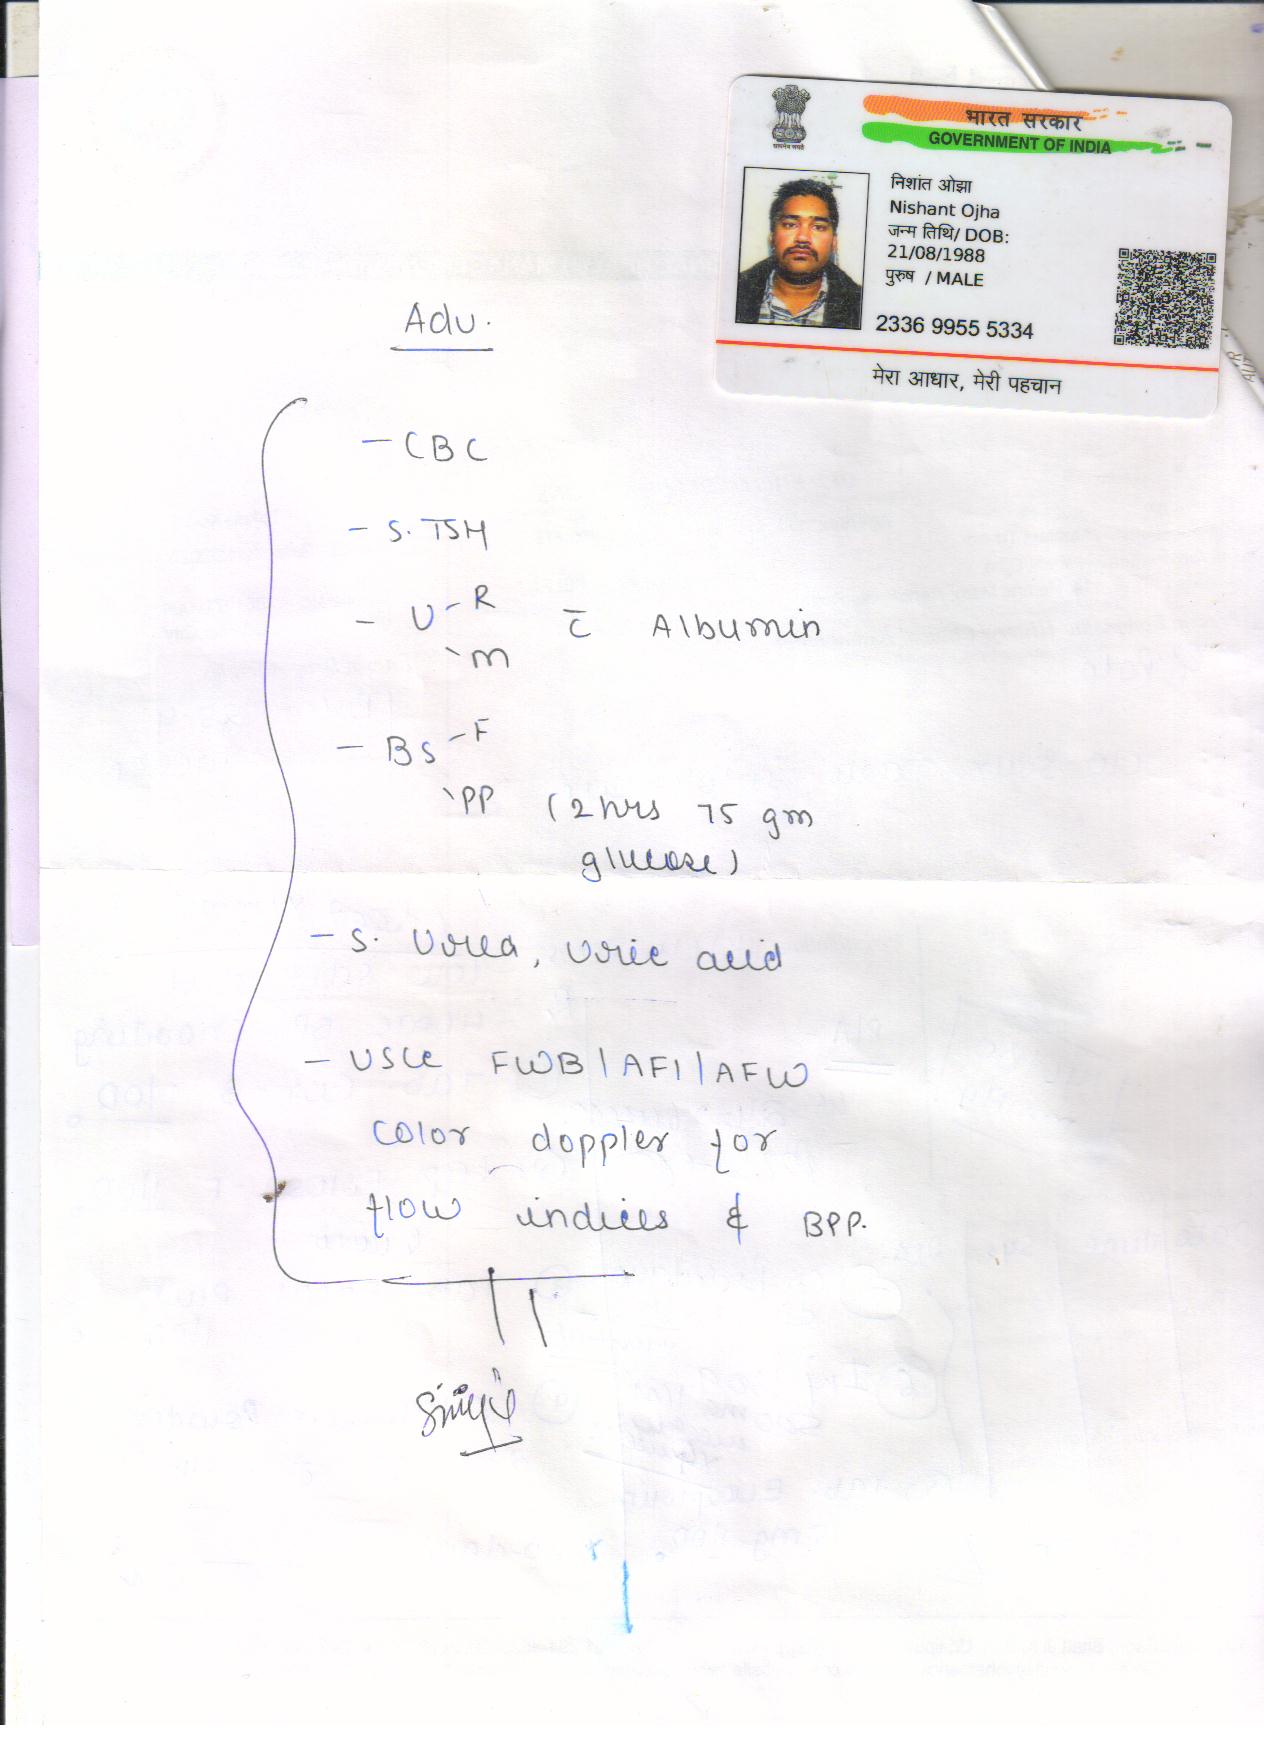 भारत सरकार
GOVERNMENT OF INDIA
निशांत ओझा
Nishant Ojha
जन्म तिथि/ DOB:
21/08/1988
पुरुष / MALE
2336 9955 5334
मेरा आधार, मेरी पहचान
Adv.
- CBC
- S. TSH
- U - R
- m
c̄ Albumin
- BS - F
- PP (2 hrs 75 gm
glucose)
- S. Urea, Uric acid
- USG FWB / AFI / AFW
color doppler for
flow indices & BPP.